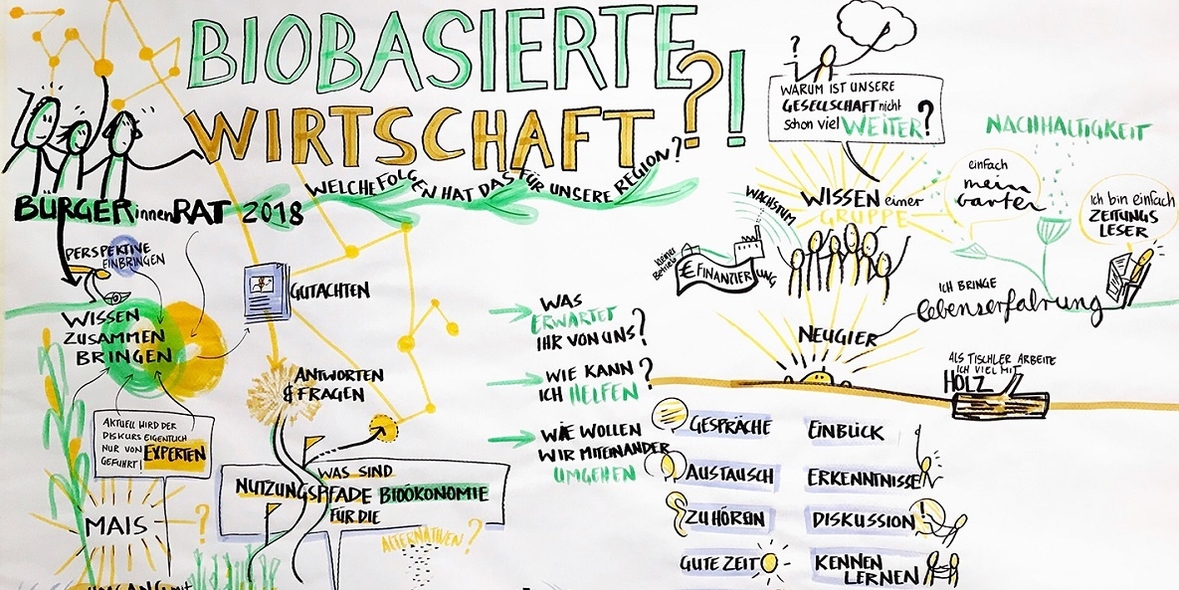 BIOBASIERTE
WIRTSCHAFT?!
WELCHE FOLGEN HAT DAS FÜR UNSERE REGION?
BÜRGERinnenRAT 2018
PERSPEKTIVE
EINBRINGEN
WISSEN
ZUSAMMEN
BRINGEN
GUTACHTEN
ANTWORTEN
& FRAGEN
AKTUELL WIRD DER
DISKURS EIGENTLICH
NUR VON EXPERTEN
GEFÜHRT!
MAIS
?
WAS SIND
NUTZUNGSPFADE BIOÖKONOMIE
FÜR DIE
ALTERNATIVEN?
WAS
ERWARTET
IHR VON UNS?
WIE KANN
ICH HELFEN?
WIE WOLLEN
WIR MITEINANDER
UMGEHEN
?
WARUM IST UNSERE
GESELLSCHAFT nicht
schon viel WEITER?
NACHHALTIGKEIT
WISSEN einer
GRUPPE
WACHSTUM
kleiner
Betrieb
€ FINANZIERUNG
einfach
mein
Garten
Ich bin einfach
ZEITUNGS
LESER
ICH BRINGE
lebenserfahrung
NEUGIER
ALS TISCHLER ARBEITE
ICH VIEL MIT
HOLZ
GESPRÄCHE
AUSTAUSCH
ZUHÖREN
GUTE ZEIT
EINBLICK
ERKENNTNISSE
DISKUSSION
!
KENNEN
LERNEN